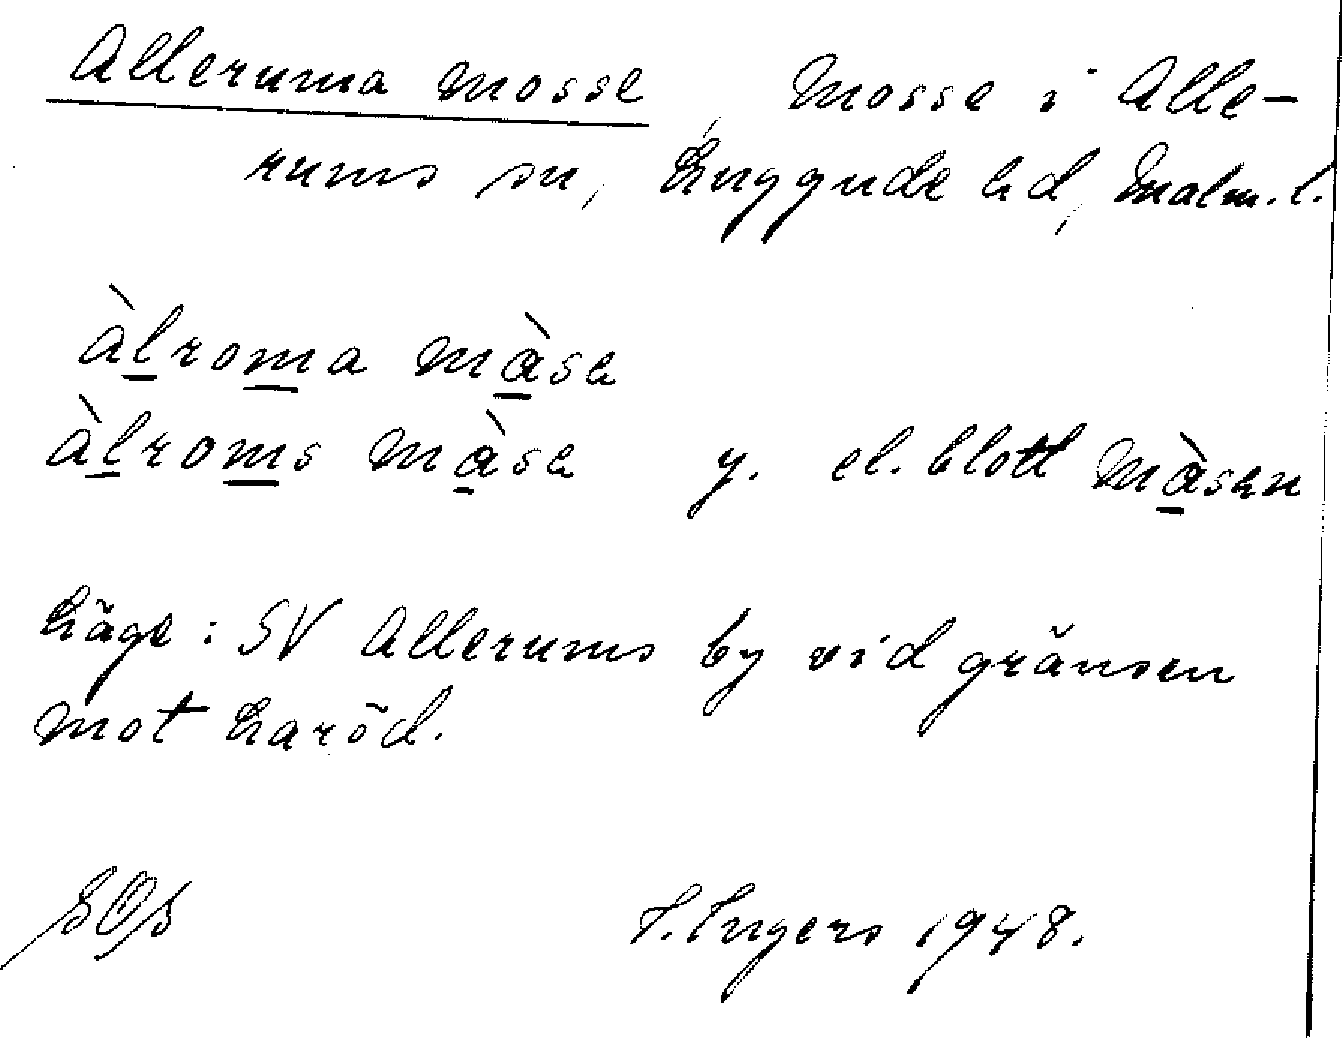 Alleruma mosse, Mosse i Alle-
rums sn, Luggude hd, Malm. l.
àlroma màse
àlroms màse y. el. blott màsen
Läge: SV Allerums by vid gränsen
mot Laröd.
I. Ingers 1948.